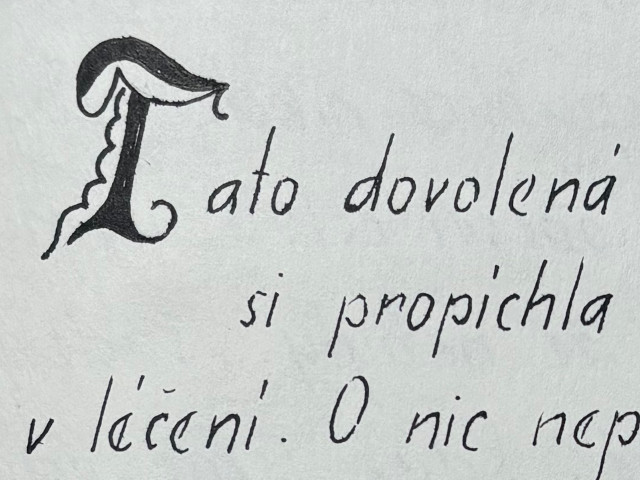 Tato dovolená
si propíchla
v léčení. O nic nep